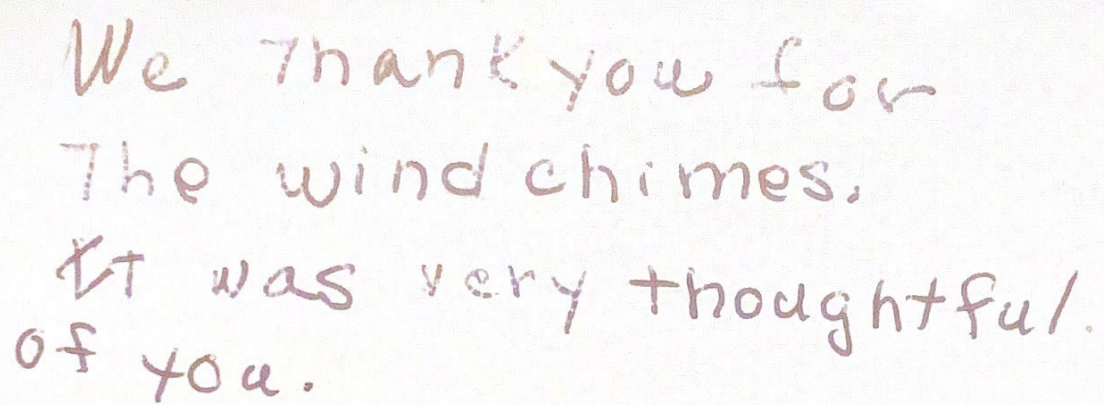 We Thank you for
The wind chimes.
It was very thoughtful.
of you.